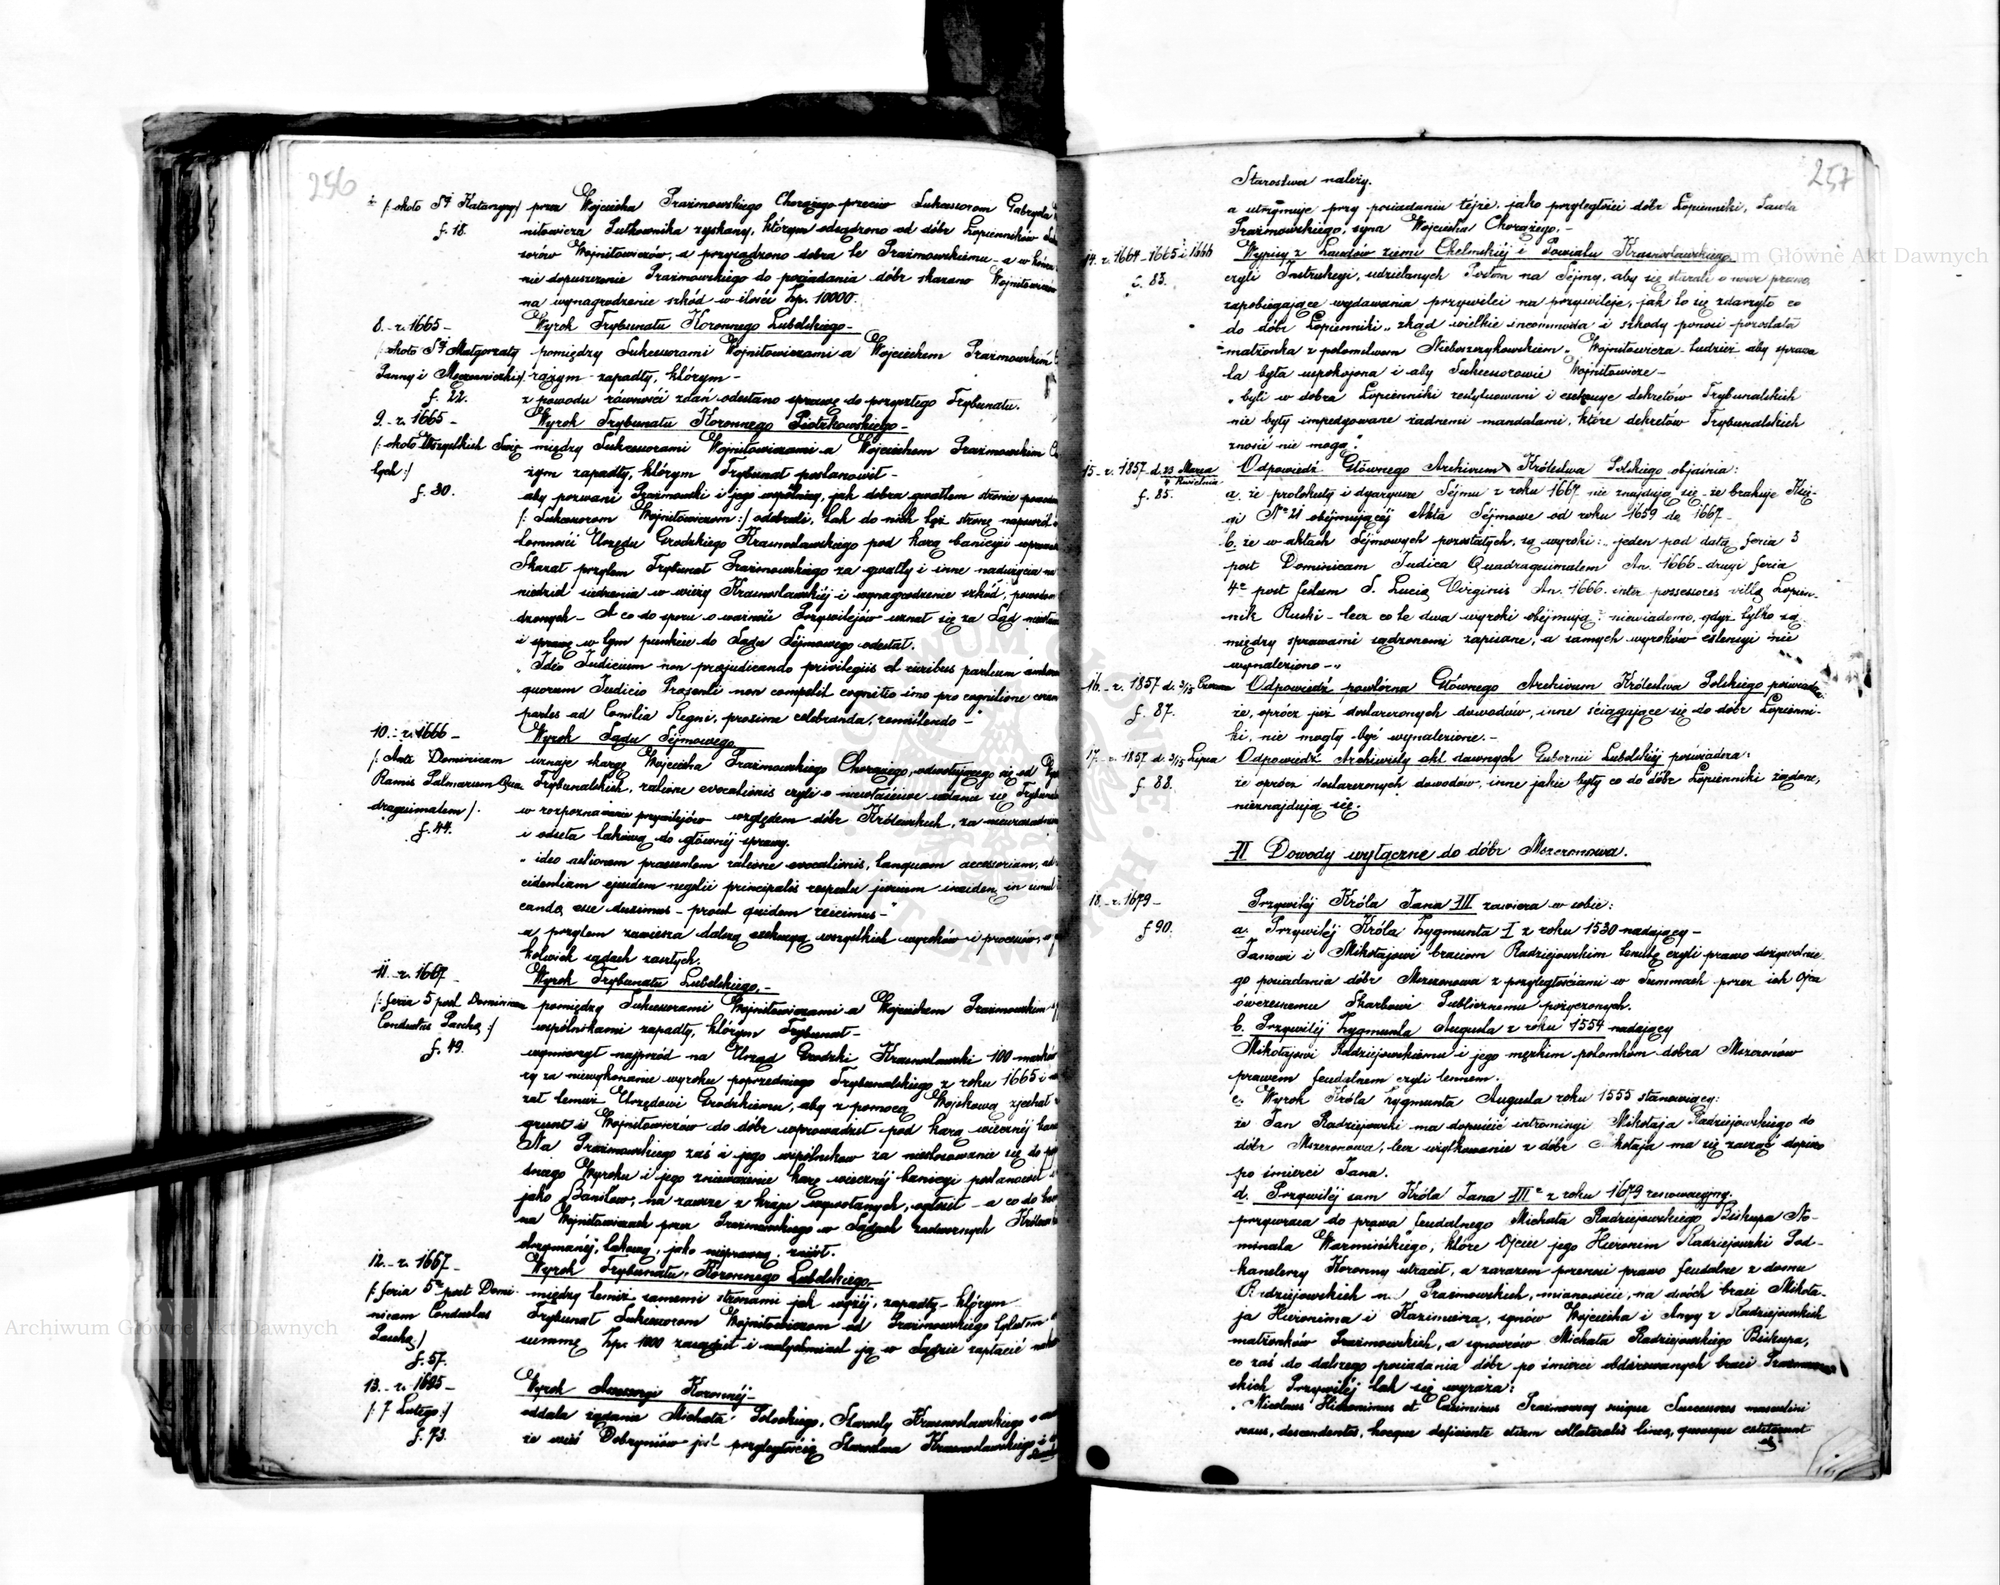 256
/: około Sej Katarzyny:/ przez Wojciecha Prażmowskiego Chorążego przeciw Sukcessorom Gabryela
f. 18. niłowicza Pułkownika zyskany, którym odsądzono od dóbr Łopienników
sorów Wojniłowiczów, a przysądzono dobra te Prażmowskiemu – a w końcu
nie dopuszczenie Prażmowskiego do posiadania dóbr skazano Wojniłowiczów
na wynagrodzenie szkód w ilości Zp. 10000.
8. – r. 1665 – Wyrok Trybunału Koronnego Lubelskiego –
/: około Sej Małgorzaty pomiędzy Sukcessorami Wojniłowiczami a Wojciechem Prażmowskim
Panny i Męczenniczki:/ rążym zapadły, którym –
f. 22. z powodu równości zdań odesłano sprawę do przyszłego Trybunału.
9. – r. 1665 – Wyrok Trybunału Koronnego Piotrkowskiego –
/: około Wszystkich Świę- między Sukcessorami Wojniłowiczami a Wojciechem Prażmowskim
tych :/ żym zapadły, którym Trybunał postanowił –
f. 30. aby pozwani Prażmowski i jego wspólnicy, jak dobra gwałtem stronie
/: Sukcessorom Wojniłowiczom :/ odebrali, tak do nich też stronę napowrót
tomności Urzędu Grodzkiego Krasnostawskiego pod karą banicyi
Skazał przytem Trybunał Prażmowskiego za gwałty i inne nadużycia na
niedziel siedzenia w wieży Krasnostawskiéj i wynagrodzenie szkód,
dzonych – A co do sporu o ważność Przywilejów uznał się za Sąd
i sprawę w tym punkcie do Sądu Sejmowego odesłał.
„Ideo Judicium non præjudicando privilegiis et juribus partium
quorum Judicio Præsenti non competit cognitio imo pro cognitione
partes ad Comitia Regni, proxime celebranda, remittendo –"
10. – r. 1666 – Wyrok Sądu Sejmowego
/: Ante Dominicam uznaje skargę Wojciecha Prażmowskiego Chorążego, odwołującego się od
Ramis Palmarum Qua- Trybunalskich, ratione evocationis czyli o niewłaściwe wdanie się
dragesimalem /. w rozpoznanie przywilejów względem dóbr Królewskich, za
f. 44. i odseła takową do głównéj sprawy.
„ideo actionem præsentem ratione evocationis, tanquam accessoriam,
cidentiam ejusdem negotii principalis respectu jurium
canda esse duximus – prout quidem reicimus –"
a przytem zawiesza dalszą exekucyą wszystkich wyroków i processów,
kolwiek sądach zaszłych.
11. – r. 1667 – Wyrok Trybunału Lubelskiego. –
/: feria 5 post Dominicam pomiędzy Sukcessorami Wojniłowiczami a Wojciechem Prażmowskim
Conductus Pascha :/ wspólnikami zapadły, którym Trybunał –
f. 49. wymierzył najprzód na Urząd Grodzki Krasnostawski 100 marków
ry za niewykonanie wyroku poprzedniego Trybunalskiego z roku 1665 i
zał temuż Urzędowi Grodzkiemu, aby z pomocą Wojskową zjechał
grunt i Wojniłowiczów do dóbr wprowadził pod karą wiecznéj
Na Prażmowskiego zaś i jego wspólników za niestosowanie się do
dnego Wyroku i jego znieważenie karę wiecznéj banicyi postanowił
jako Banitów, na zawsze z kraju wywołanych, ogłosił – a co do
na Wojniłowiczach przez Prażmowskiego w Sądach zadwornych
otrzymanéj, takową, jako nieprawną, zniósł.
12. – r. 1667 – Wyrok Trybunału Koronnego Lubelskiego –
/: feria 5ta post Domi- między temiż samemi stronami jak wyżéj, zapadły – którym
nicam Conductus Trybunał Sukcessorom Wojniłowiczom od Prażmowskiego tytułem
Pascha:/ summę Zp. 1000 zasądził i natychmiast ją w Sądzie zapłacić
f. 57.
13. – r. 1695 – Wyrok Assessoryi Koronnéj –
/: 7 Lutego :/ oddala żądania Michała Potockiego, Starosty Krasnostawskiego
f. 73. że wieś Dobryniów jest przyległością Starostwa Krasnostawskiego i
257
Starostwa należy.
a utrzymuje przy posiadaniu tejże, jako przyległości dóbr Łopienniki, Pawła
Prażmowskiego, syna Wojciecha Chorążego. –
14. r. 1664 – 1665 i 1666 Wypisy z Laudów ziemi Chełmskiéj i Powiatu Krasnostawskiego
f. 83. czyli Instrukcyj, udzielanych Posłom na Sejmy, aby się starali o nowe prawo,
zapobiegające wydawania przywilei na przywileje, jak to się zdarzyło co
do dóbr Łopienniki „zkąd wielkie incommoda i szkody ponosi pozostała
małżonka z potomstwem Nieboszczykowskiem „Wojniłowicza – tudzież aby sprawa
ta była uspokojona i aby Sukcessorowie Wojniłowicze –
„byli w dobra Łopienniki restytuowani i exekucye dekretów Trybunalskich
nie były impedyowane żadnemi mandatami, które dekretów Trybunalskich
znosić nie mogą".
15. – r. 1857 d. 23 Marca / 4 Kwietnia Odpowiedź Głównego Archivum Królestwa Polskiego objaśnia:
f. 85. a. że protokuły i dyaryusze Sejmu z roku 1667 nie znajdują się – że brakuje Księ-
gi No 21 obejmującéj Akta Sejmowe od roku 1659 do 1667 –
b. że w aktach Sejmowych pozostałych, są wyroki: jeden pod datą feria 3
post Dominicam Judica Quadragesimalem An. 1666 – drugi feria
4ta post festum S. Lucia Virginis An. 1666. inter possessores villa Łopien-
nik Ruski – lecz co te dwa wyroki obejmują: niewiadomo, gdyż tylko są
między sprawami sądzonemi zapisane, a samych wyroków extensyi nie
wynaleziono –"
16. – r. 1857 d. 3/15 Czerwca Odpowiedź powtórna Głównego Archivum Królestwa Polskiego poświadcza:
f. 87. że, oprócz już dostarczonych dowodów, inne ściągające się do dóbr Łopienni-
ki, nie mogły być wynalezione. –
17. – r. 1857 d. 3/15 Lipca Odpowiedź Archiwisty akt dawnych Gubernii Lubelskiéj poświadcza:
f. 88. że oprócz dostarczonych dowodów, inne jakie były co do dóbr Łopienniki żądane,
nieznajdują się.
II Dowody wyłączne do dóbr Mszczonowa.
18. – r. 1679 – Przywiléj Króla Jana III zawiera w sobie:
f 90. a. Przywiléj Króla Zygmunta I z roku 1530 nadający –
Janowi i Mikołajowi braciom Radziejowskim tenutę czyli prawo dożywotnie-
go posiadania dóbr Mszczonowa z przyległościami w Summach przez ich Ojca
ówczesnemu Skarbowi Publicznemu pożyczonych.
b. Przywiléj Zygmunta Augusta z roku 1554 nadający
Mikołajowi Radziejowskiemu i jego męzkim potomkom dobra Mszczonów
prawem feudalnem czyli lennem.
c. Wyrok Króla Zygmunta Augusta roku 1555 stanowiący:
że Jan Radziejowski ma dopuścić intromissyi Mikołaja Radziejowskiego do
dóbr Mszczonowa, lecz użytkowanie z dóbr Mikołaja ma się zacząć dopiero
po śmierci Jana.
d. Przywiléj sam Króla Jana IIIo z roku 1679 renowacyjny.
przywraca do prawa feudalnego Michała Radziejowskiego Biskupa No-
minata Warmińskiego, które Ojciec jego Hieronim Radziejowski Pod-
kanclerzy Koronny utracił, a zarazem przenosi prawo feudalne z domu
Radziejowskich na Prażmowskich, mianowicie, na dwóch braci Mikoła-
ja Hieronima i Kazimierza, synów Wojciecha i Anny z Radziejowskich
małżonków Prażmowskich, a synowców Michała Radziejowskiego Biskupa,
co zaś do dalszego posiadania dóbr po śmierci obdarowanych braci Prażmow-
skich Przywiléj tak się wyraża:
„Nicolaus Hieronimus et Casimirus Prażmowscy eorumque Successores masculini
sexus, descendentes, hocque deficiente etiam collateralis linea, quousque extiterunt
Archiwum Główne Akt Dawnych
Archiwum Główne Akt Dawnych